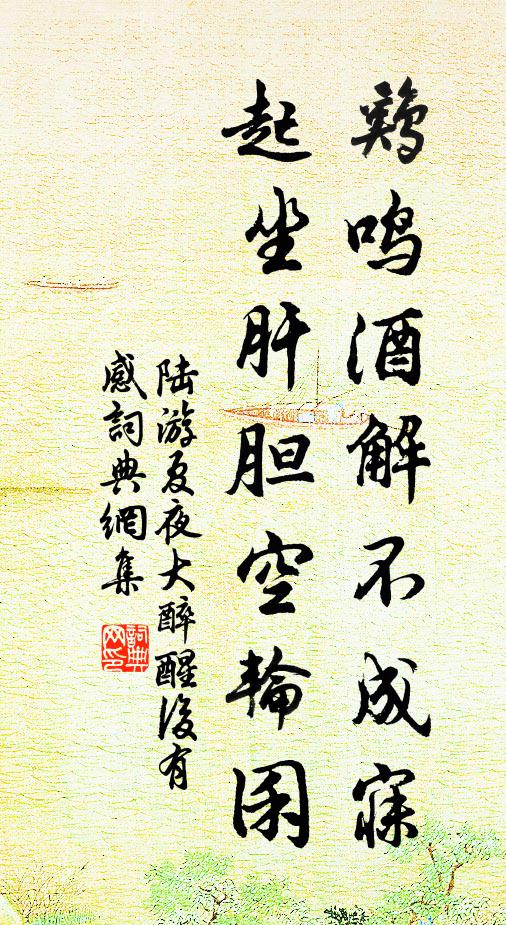 鷄鸣酒解不成寐
起坐肝胆空輪囷
陆游夏夜大醉醒後有
感詞典網集
詞典
网印